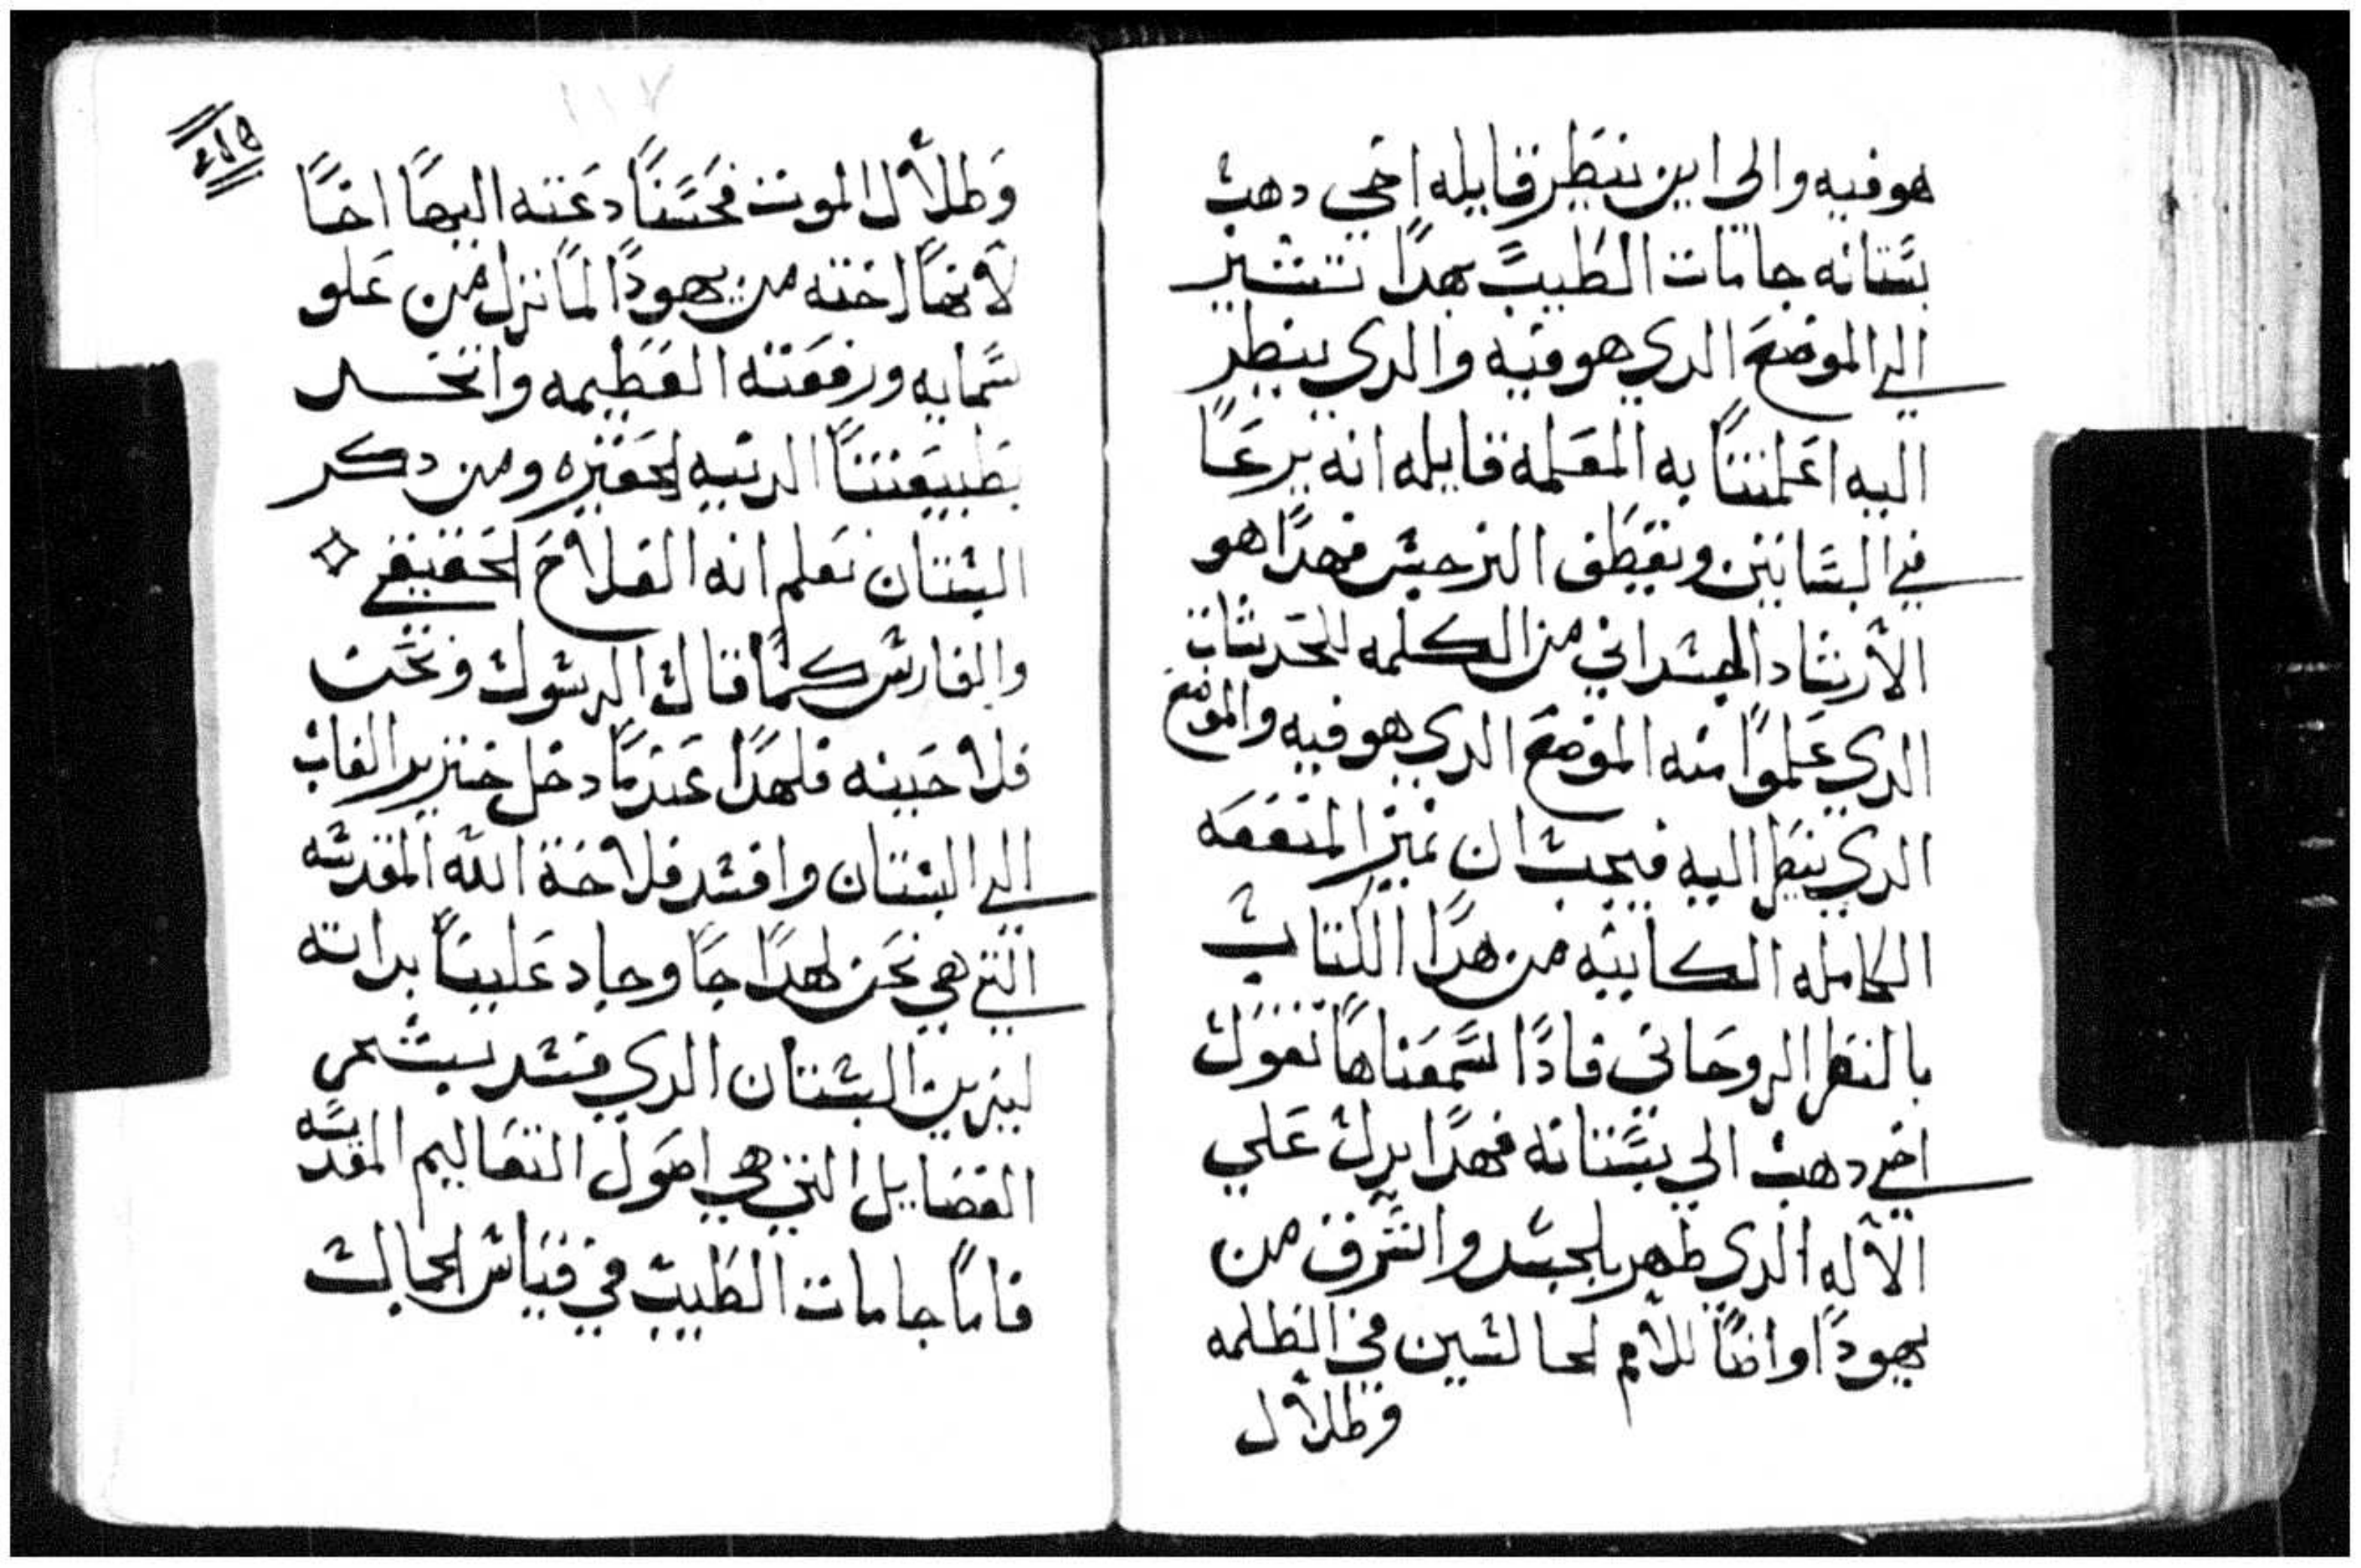 هو فيه والى اين ينظر قايله اخي دهب
بستانه جامات الطيب بهدا تشير
الي الموضع الدي هو فيه والدي ينظر
اليه اعلمتنا به المعلمه قايله انه يرعا
في البساتين ويقطف النرجس فهدا هو
الأرشاد الجسداني من الكلمه للحدثات
الدي علموا منه الموضع الدي هو فيه والموضع
الدي ينظر اليه فيجب ان نميز المنفعه
الكامله الكاينه من هدا الكتاب
بالنظر الروحاني فادا سمعناها تقول
اخي دهب الي بستانه فهدا يدل علي
الأله الدي ظهر بالجسد واشرف من
يهودا واضا للأمم الجالسين في الظلمه
وظلال
وظلال الموت فحسنا دعته اليها اخا
لأنها اخته من يهودا لما نزل من علو
سمايه ورفعته العظيمه واتحد
بطبيعتنا الدنيه الحقيره ومن دكر
البستان نعلم انه الفلاح الحقيقي
والفارس كما قال الرسول ونحن
فلاحينه فلهدا عندما دخل خنزير الغاب
الي البستان وافسد فلاحة الله المقدسه
التي هي نحن لهدا جا وجاد علينا بداته
ليزين البستان الدي فسد بشجر
الفضايل التي هي اصول التعاليم المقدسه
فاما جامات الطيب في قياس الجمال